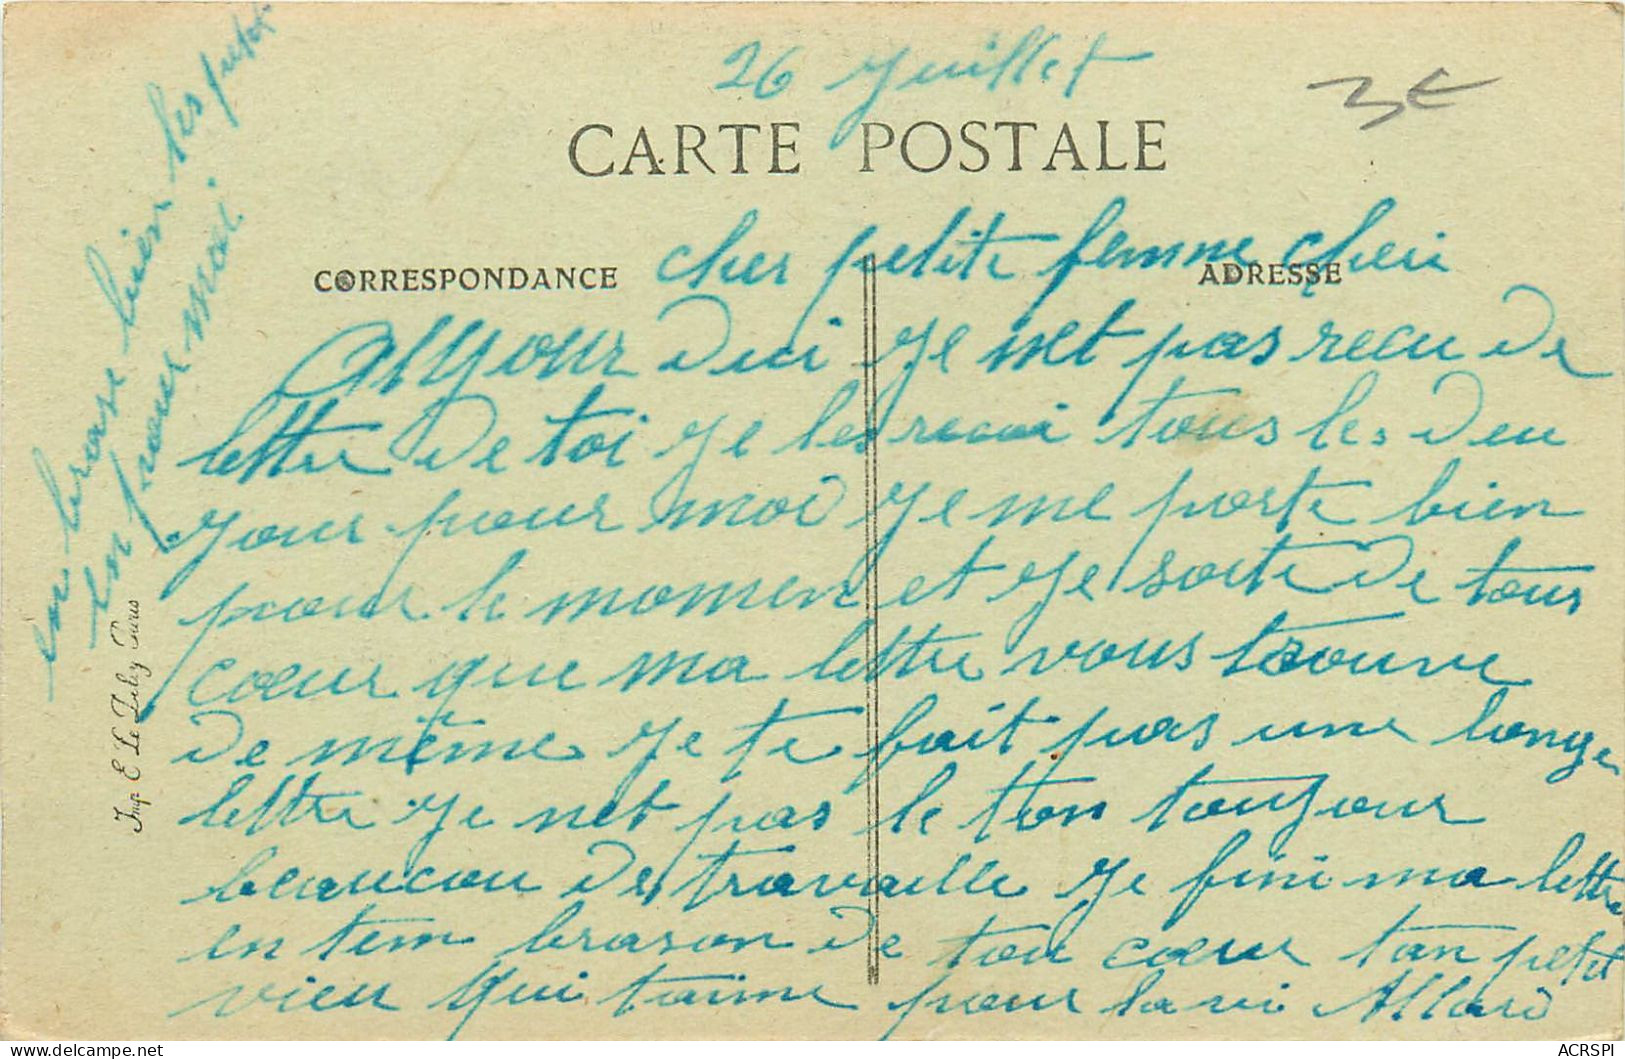 26 Juillet
3€
CARTE POSTALE
CORRESPONDANCE
ADRESSE
cher petite femme cheri
Aujour Dui je net pas recu de
lettre De toi je les recoi tous les deu
jour pour moi je me porte bien
pour le momen et je soite De tous
cœur que ma lettre vous trouve
De même je te fait pas une longe
lettre je net pas le ton toujour
beaucou De travaille je fini ma lettre
en tem brason De tou cœur tan petit
vieu qui taime pour la vi Allard
en brase bien les petet
en pour moi
Imp. E. Le Deley Paris
ACRSPI
delcampe.net